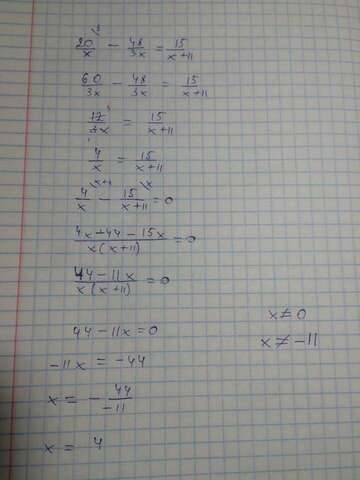 20/x \3 − 48/3x = 15/(x+11)
60/3x − 48/3x = 15/(x+11)
12/3x = 15/(x+11)
4/x = 15/(x+11)
4/x \x+11 − 15/(x+11) \x = 0
(4x+44−15x)/(x(x+11)) = 0
(44−11x)/(x(x+11)) = 0
44−11x=0
x≠0
−11x = −44
x≠−11
x = − 44/−11
x = 4